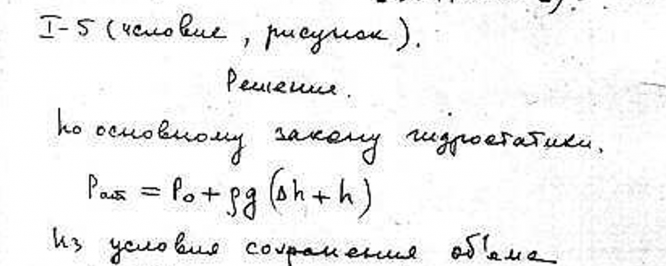 I-5 (условие, рисунок).
Решение.
По основному закону гидростатики.
Pат = P₀ + ρg (Δh + h)
Из условия сохранения об'ема